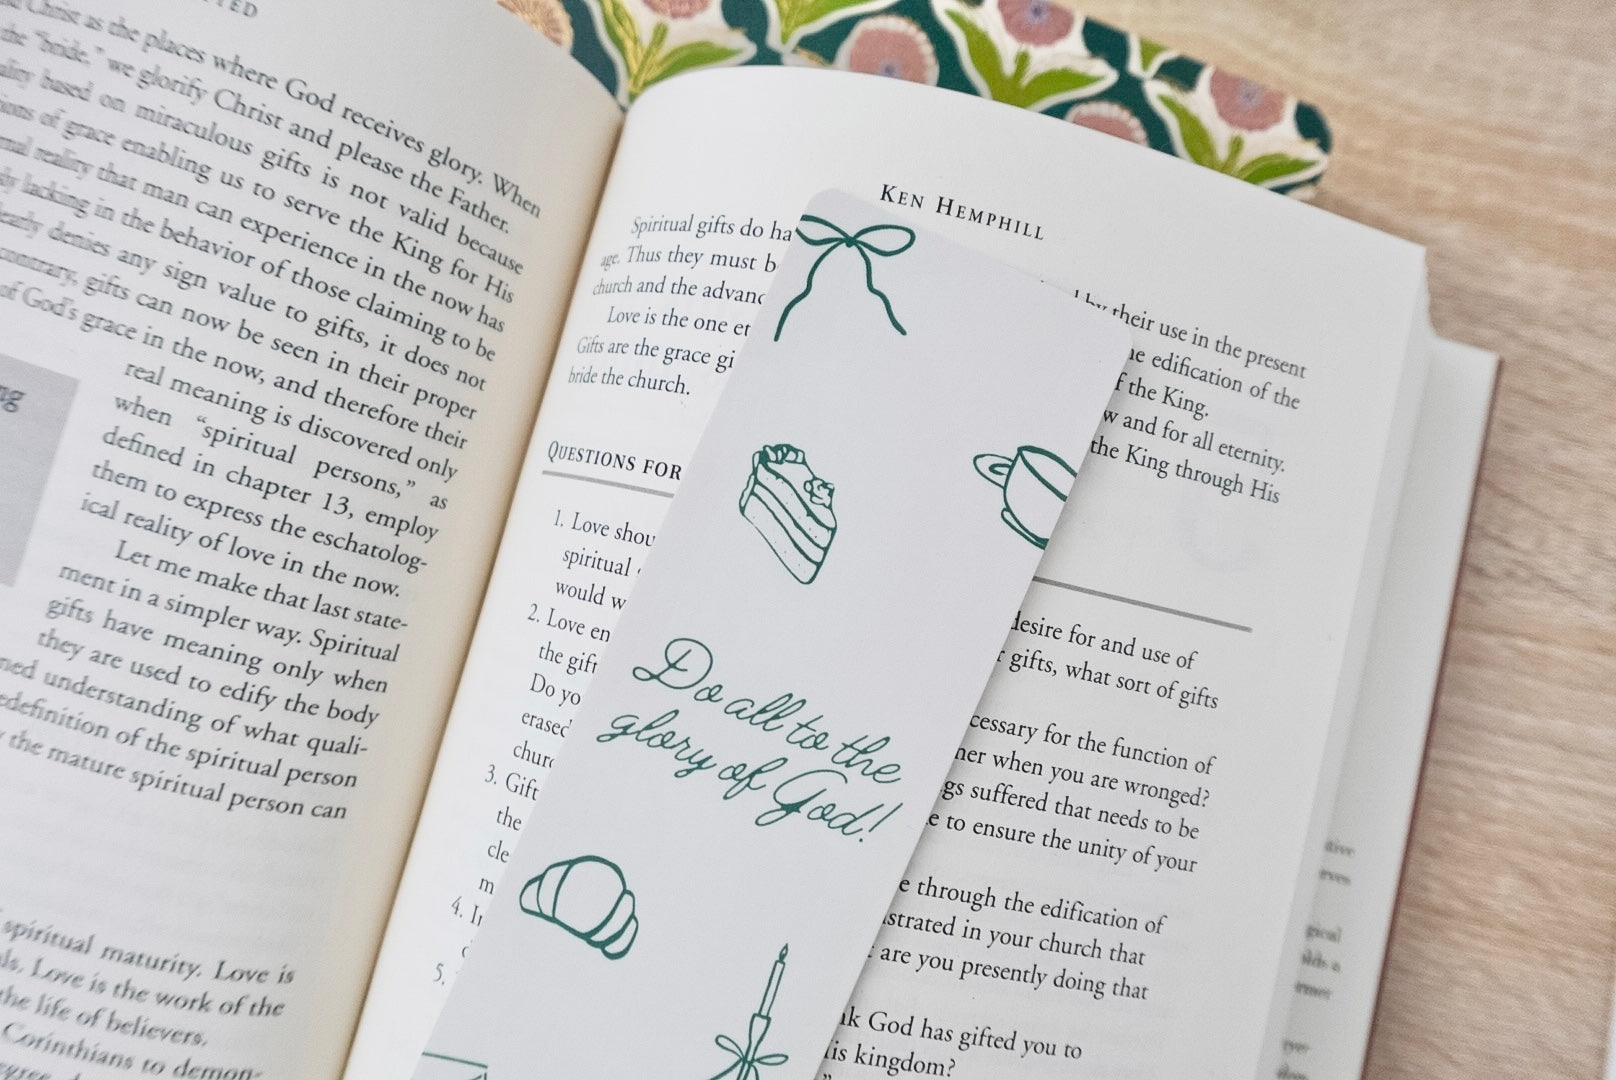 Christ as the places where God receives glory. When
the "bride," we glorify Christ and please the Father.
based on miraculous gifts is not valid because
of grace enabling us to serve the King for His
reality that man can experience in the now has
lacking in the behavior of those claiming to be
denies any sign value to gifts, it does not
contrary, gifts can now be seen in their proper
of God's grace in the now, and therefore their
real meaning is discovered only
when "spiritual persons," as
defined in chapter 13, employ
them to express the eschatolog-
ical reality of love in the now.
Let me make that last state-
ment in a simpler way. Spiritual
gifts have meaning only when
they are used to edify the body
understanding of what quali-
of the spiritual person
the mature spiritual person can
spiritual maturity. Love is
Love is the work of the
the life of believers.
Corinthians to demon-
KEN HEMPHILL
Spiritual gifts do ha
by their use in the present
age. Thus they must b
edification of the
church and the advanc
f the King.
Love is the one et
w and for all eternity.
Gifts are the grace gi
the King through His
bride the church.
QUESTIONS FOR
1. Love shou
desire for and use of
spiritual
gifts, what sort of gifts
would w
2. Love en
cessary for the function of
the gift
her when you are wronged?
Do yo
gs suffered that needs to be
erased
e to ensure the unity of your
churc
3. Gift
e through the edification of
the
strated in your church that
cle
are you presently doing that
m
4. I
nk God has gifted you to
is kingdom?
5.
Do all to the
glory of God!